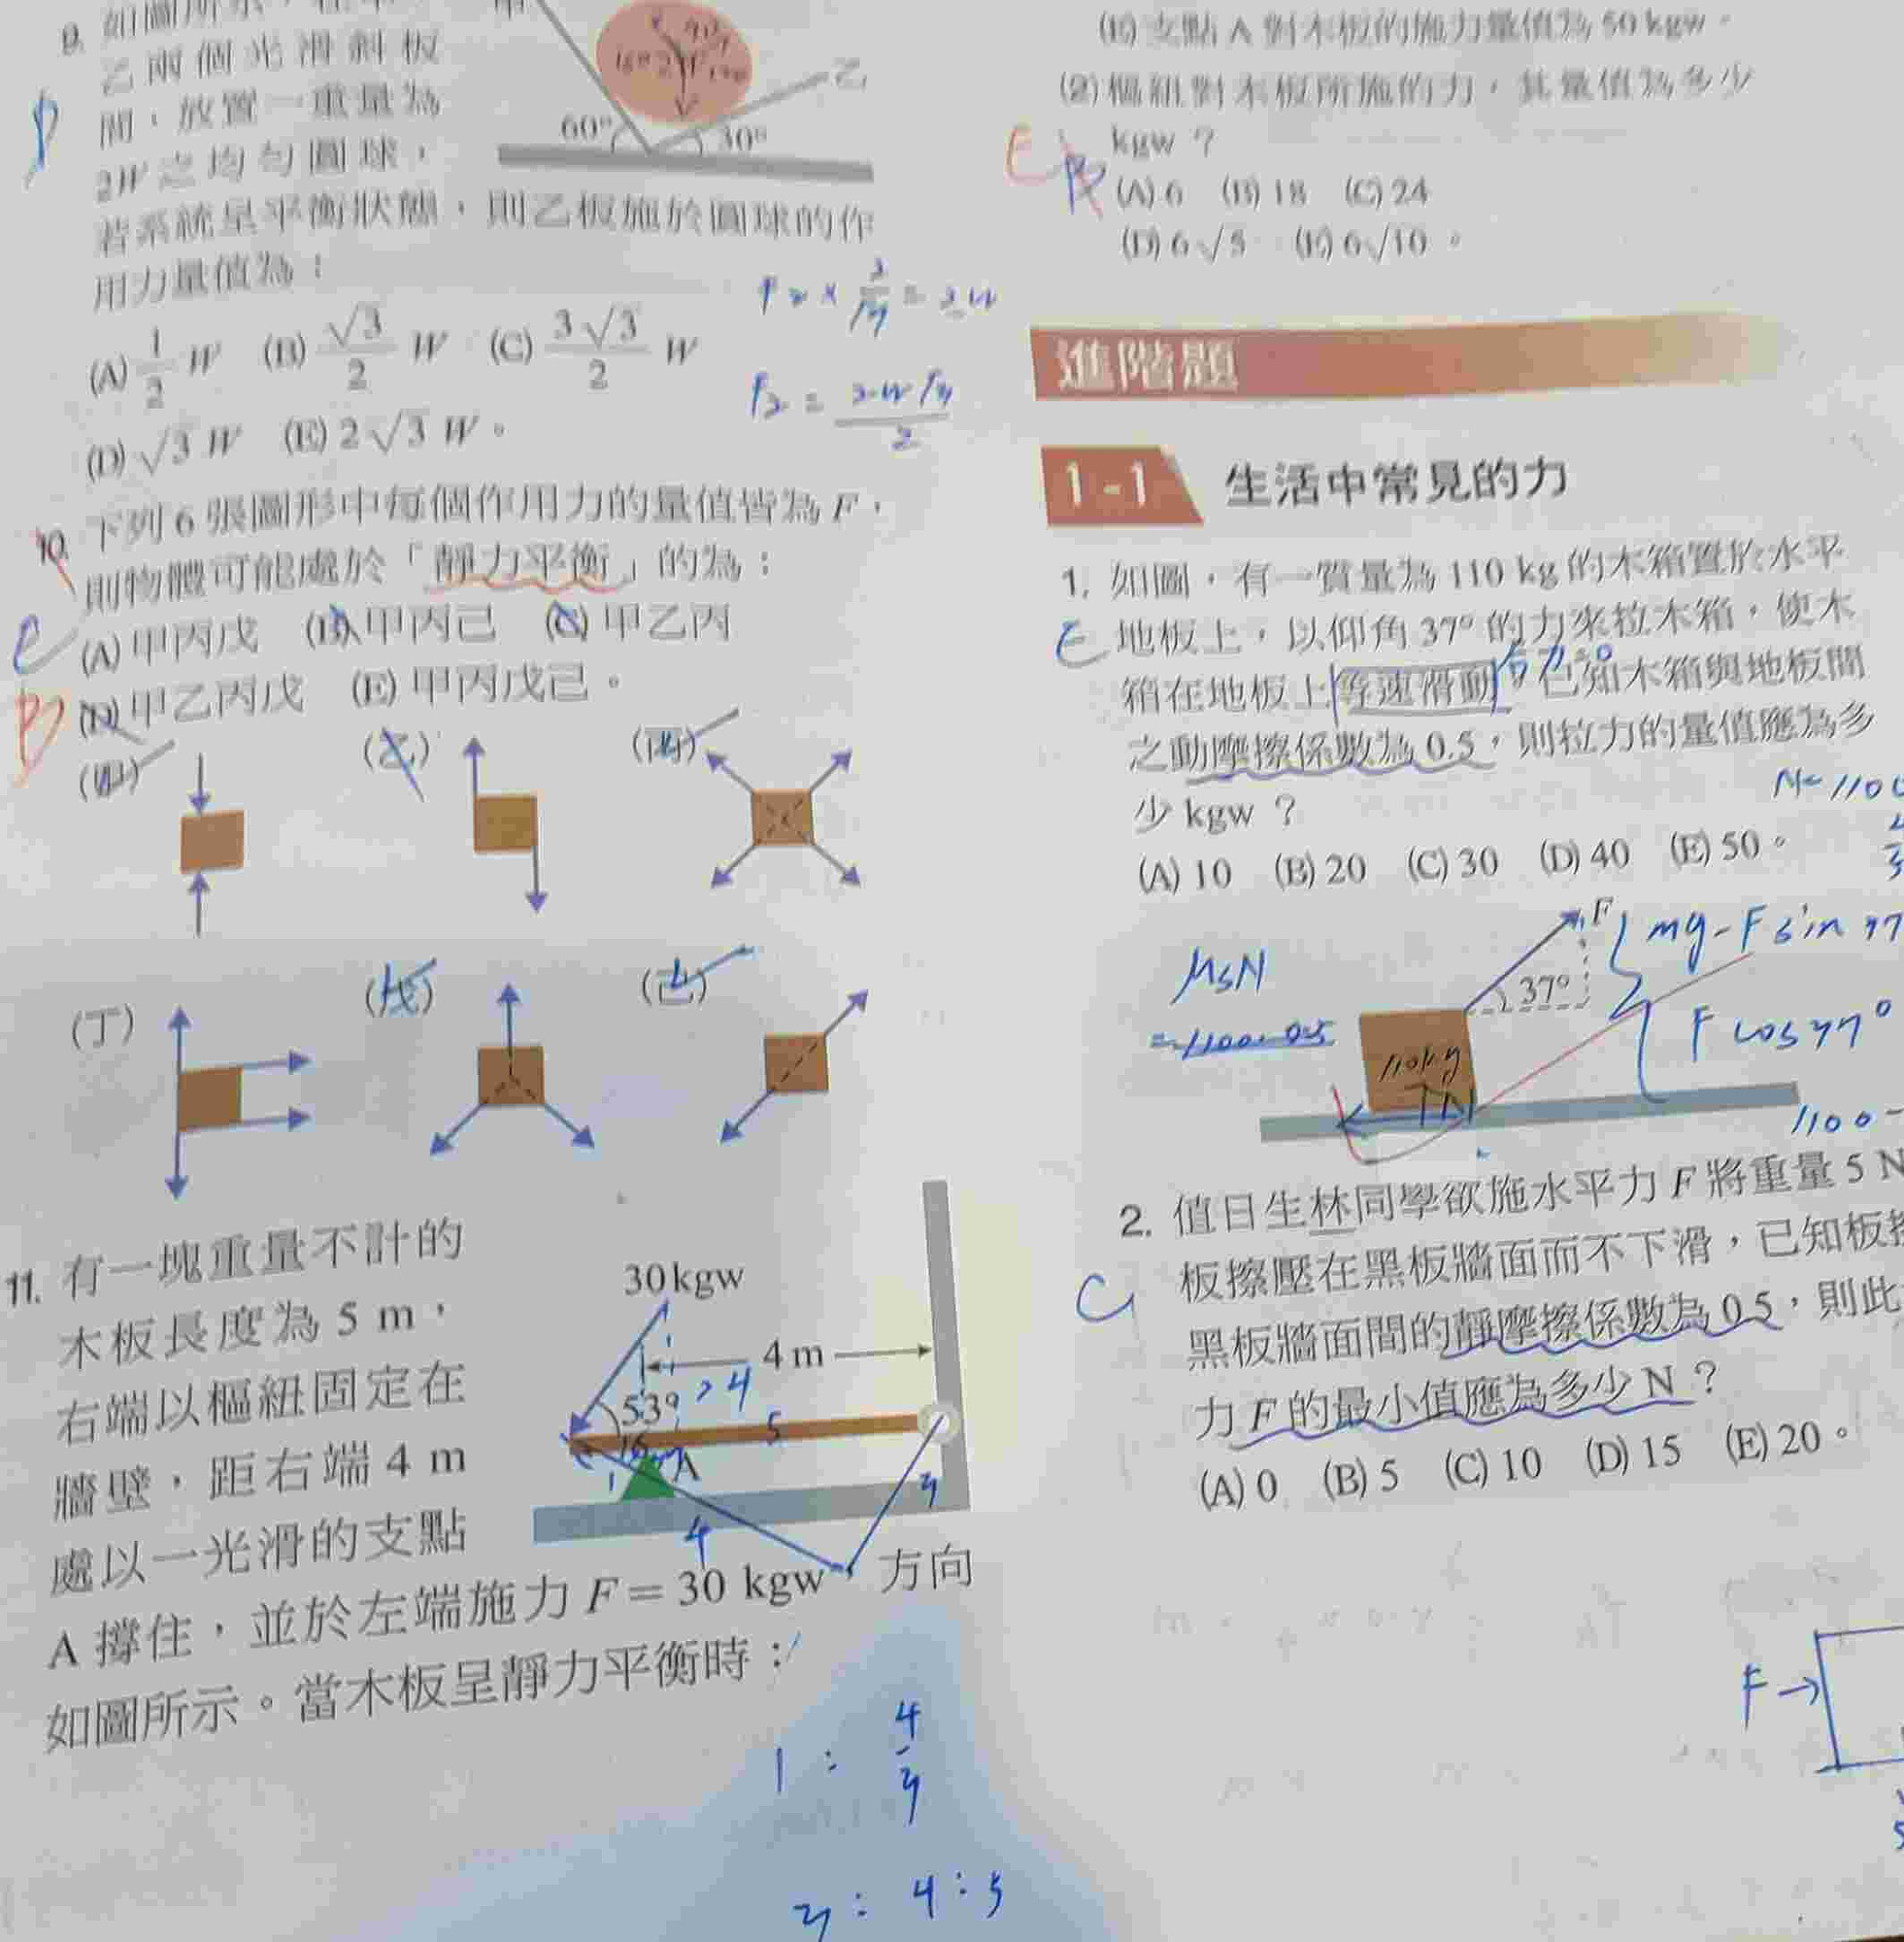 9. 如圖所示，在甲
乙兩個光滑斜板
間，放置一重量為
2W之均勻圓球，
若系統呈平衡狀態，則乙板施於圓球的作
用力量值為：
(A) 1/2 W (B) √3/2 W (C) 3√3/2 W
(D) √3 W (E) 2√3 W。
乙
60° 30°
10. 下列6張圖形中每個作用力的量值皆為F，
則物體可能處於「靜力平衡」的為：
(A) 甲丙戊 (B) 甲丙己 (C) 甲乙丙
(D) 甲乙丙戊 (E) 甲丙戊己。
(甲) (乙) (丙)
(丁) (戊) (己)
11. 有一塊重量不計的
木板長度為 5 m，
右端以樞紐固定在
牆壁，距右端 4 m
處以一光滑的支點
A 撐住，並於左端施力 F＝30 kgw、方向
如圖所示。當木板呈靜力平衡時：
30 kgw
4 m
53° > 4
5
A
4
3
1 : 4/3
3 : 4 : 5
(E) 支點 A 對木板的施力量值為 50 kgw。
(2) 樞紐對木板所施的力，其量值為多少
kgw？
(A) 6 (B) 18 (C) 24
(D) 6√5 (E) 6√10。
進階題
1-1 生活中常見的力
1. 如圖，有一質量為 110 kg 的木箱置於水平
E 地板上，以仰角 37° 的力來拉木箱，使木
箱在地板上等速滑動，已知木箱與地板間
之動摩擦係數為 0.5，則拉力的量值應為多
少 kgw？
(A) 10 (B) 20 (C) 30 (D) 40 (E) 50。
F
mg - F sin 37
μsN
37°
= 1100·0.5
F cos 37°
110kg
1100 -
2. 值日生林同學欲施水平力 F 將重量 5 N
板擦壓在黑板牆面而不下滑，已知板擦
C 黑板牆面間的靜摩擦係數為 0.5，則此
力 F 的最小值應為多少 N？
(A) 0 (B) 5 (C) 10 (D) 15 (E) 20。
F →